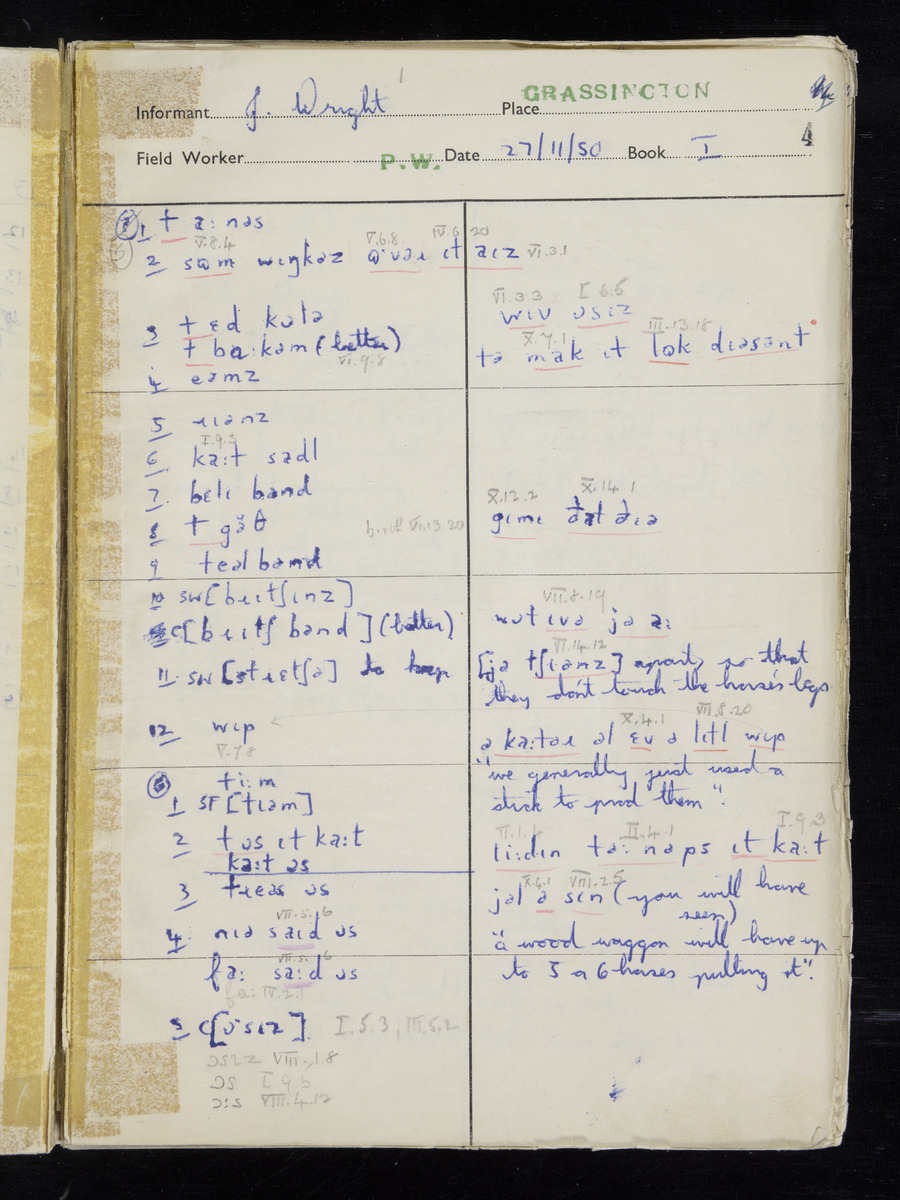 Informant J. Wright Place GRASSINGTON
Field Worker P.W. Date 27/11/50 Book I 4
1 t a: nəs
V.8.4 V.6.8. IV.6.20
2 sʊm wɪŋkəz ɪt aɪz VI.3.1
VI.3.3 I 6.5
wɪv ɔsɪz
3 t ɛd
t (better)
VI.9.8
X.7.1 III.13.18
tə mak ɪt lɒk dɪəsənt
4 eəmz
5 ɹɪənz
I.9.3
6 ka:t sadl
7 bɛlɪ band
X.12.2 X.14.1
8 t găθ VI.13.20
gɪmɪ ðat ðɪə
9 tɛəl band
10 sw[bɹɪtʃɪnz]
VII.8.19
wɒt ɪvə jə a:
c[bɹɪtʃ band] (better)
VI.14.12
11 sw[stɹɛtʃə] to keep [jə tʃɪənz] apart, so that
they don't touch the horse's legs
12 wɪp <
V.7.8
X.4.1 VIII.8.20
ə ka:təɹ əl ɛv ə lɪtl wɪp
"we generally just used a
stick to prod them".
6 ti:m
1 SF [tɪəm]
I.9.3
2 t ɔs ɪt ka:t
II.1.4 II.4.1
li:dɪn tə: nəps ɪt ka:t
ka:t ɔs
3 ɔs
X.6.1 VIII.2.5
jəl ə sɪn (you will have
seen)
VII.5.6
4 nɪə saɪd ɔs
"a wood waggon will have up
to 5 or 6 horses pulling it".
VII.5.6
fa: sa:d ɔs
fa: IV.2.1
5 c[ɔsɪz] I.5.3, III.5.2
ɔsɪz VIII.1.8
ɔs I 9 5
ɔ:s VIII.4.12